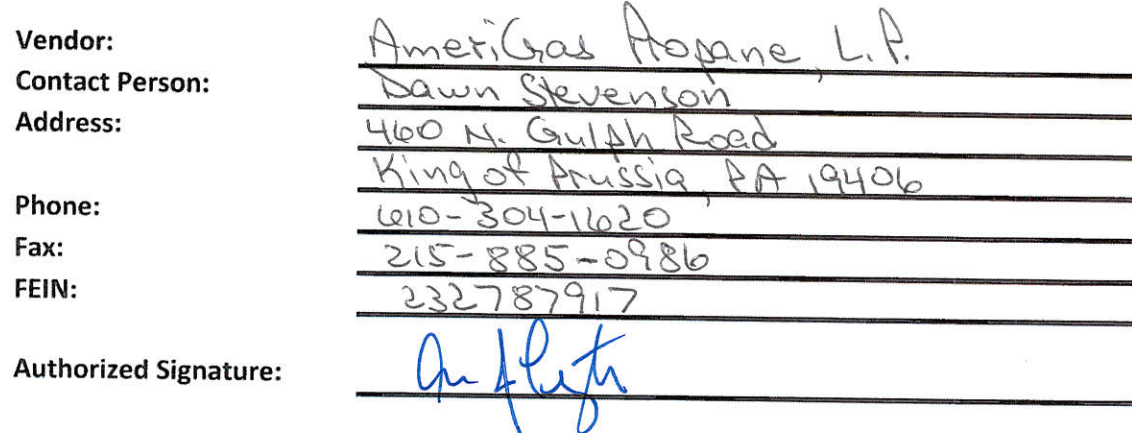 Vendor: AmeriGas Propane, L.P.
Contact Person: Dawn Stevenson
Address: 460 N. Gulph Road
King of Prussia, PA 19406
Phone: 610-304-1620
Fax: 215-885-0986
FEIN: 232787917
Authorized Signature: